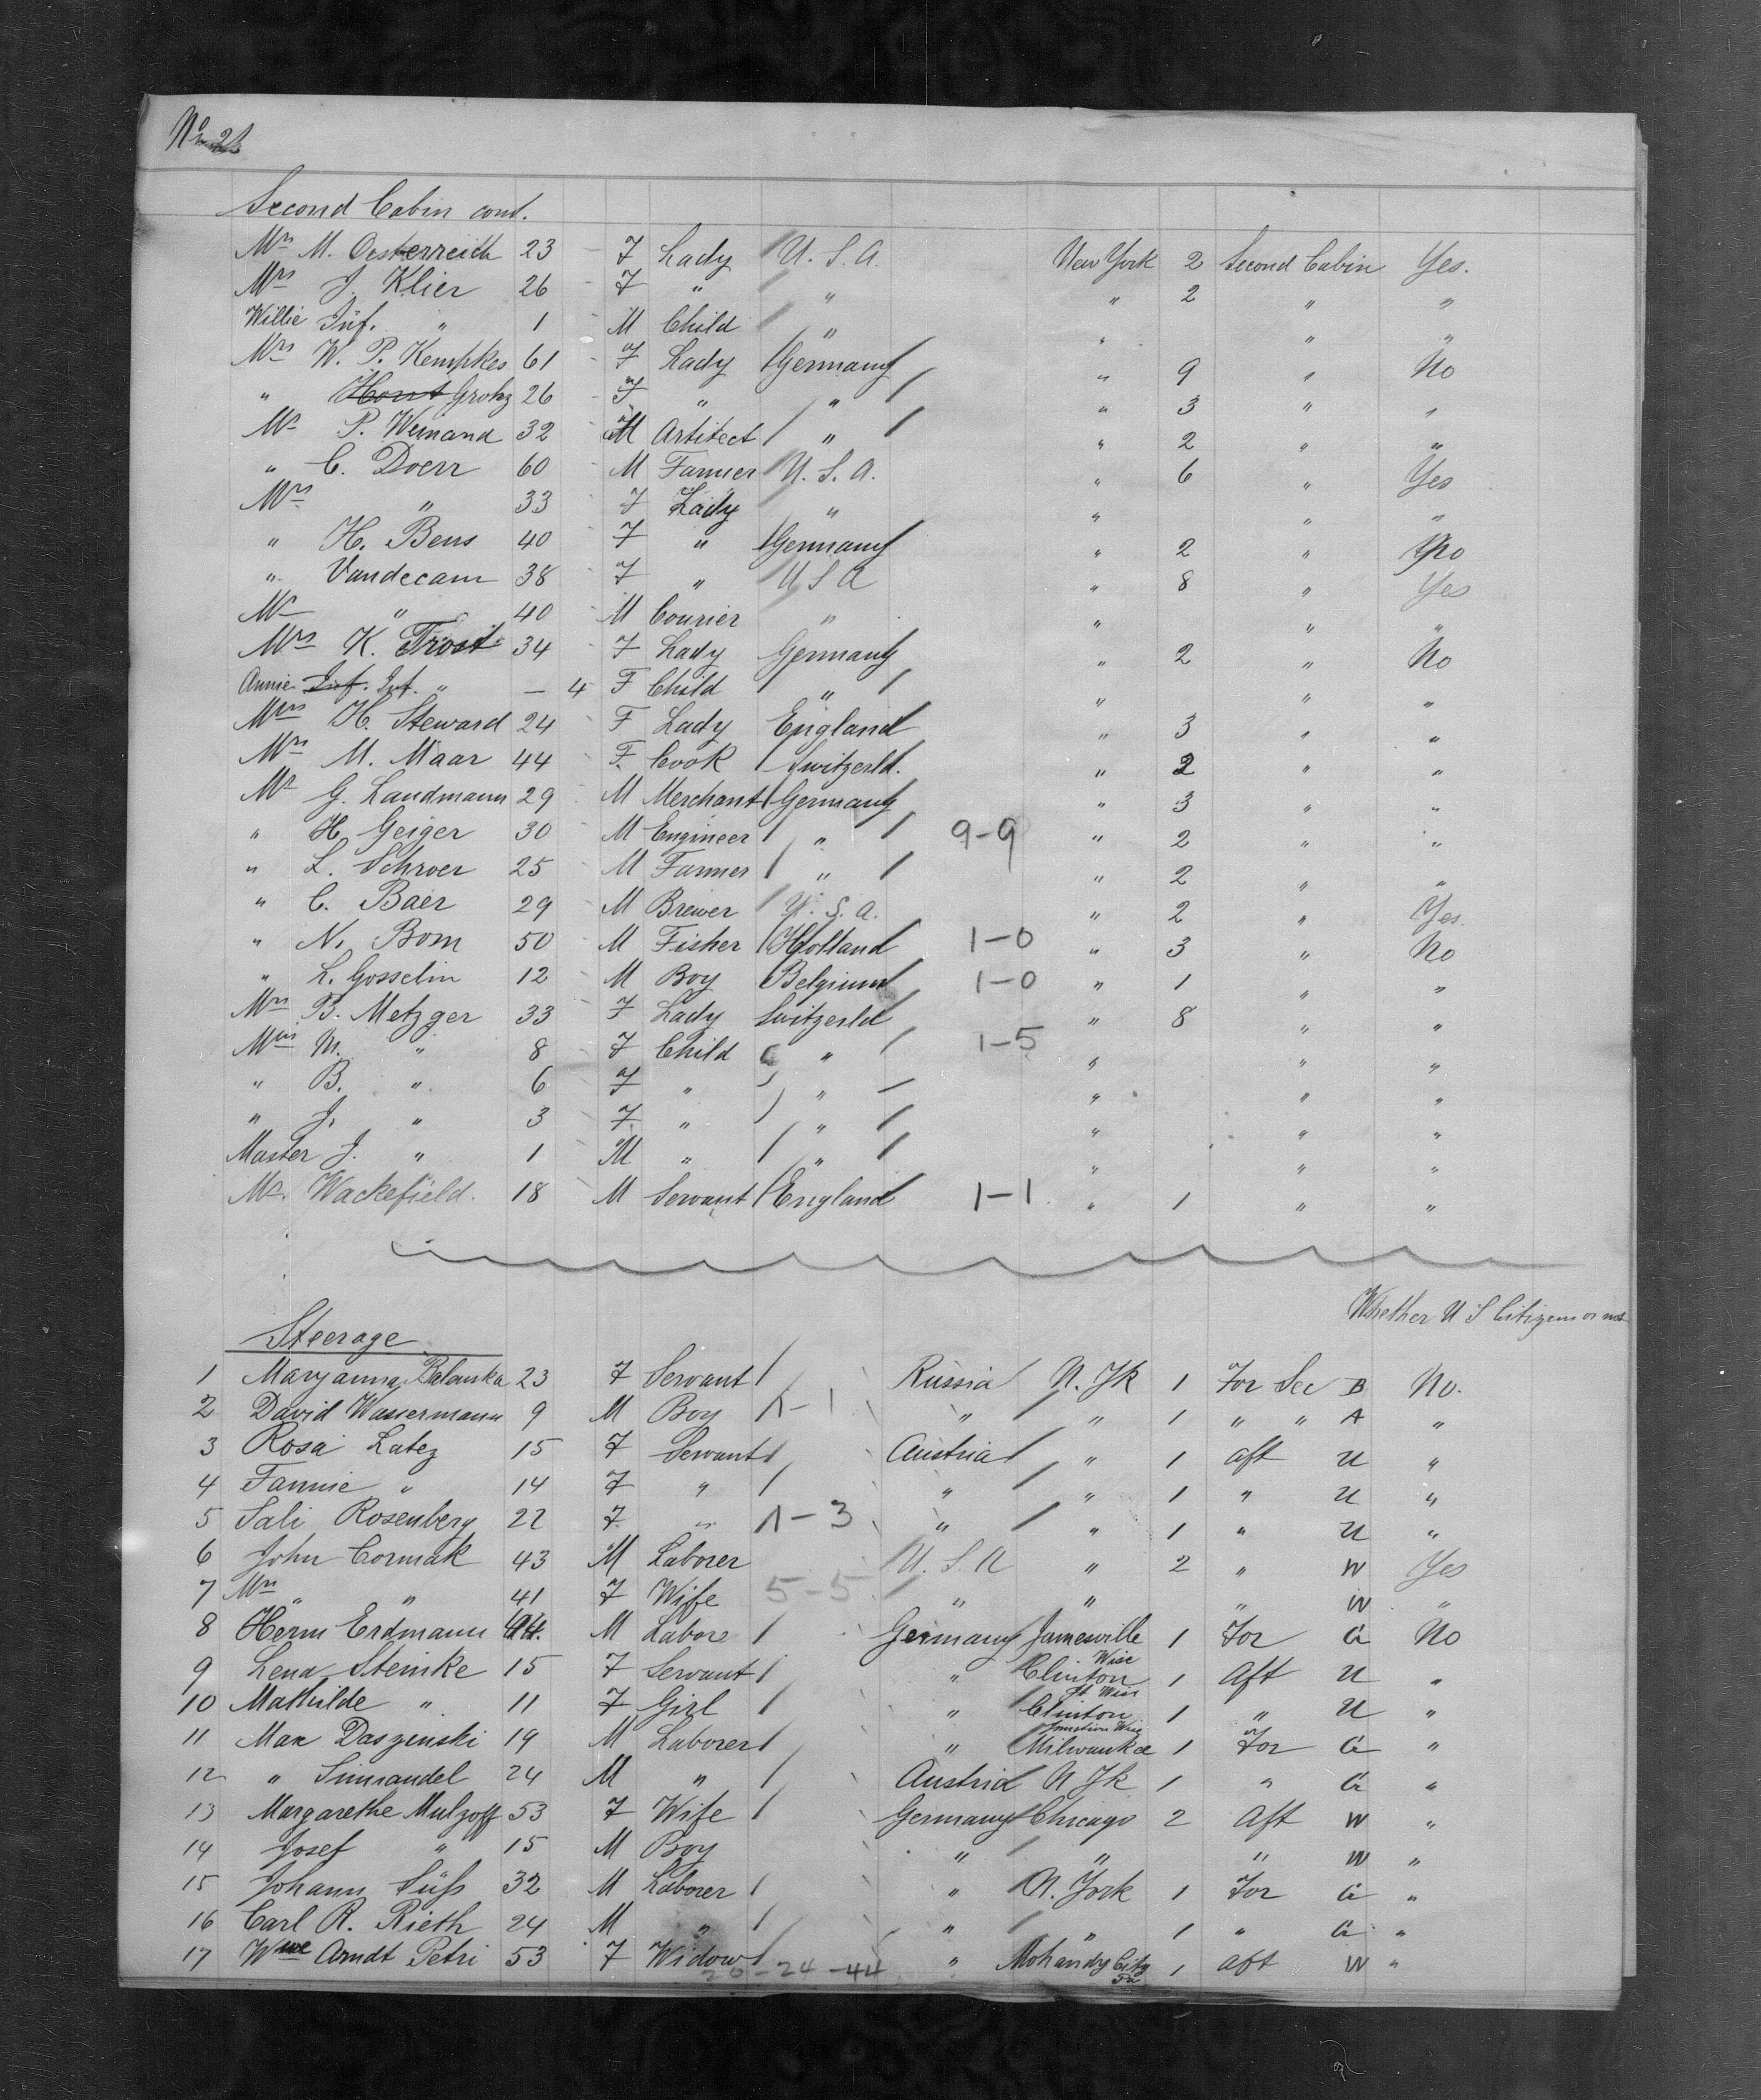 No 2
Second Cabin cont.
Mrs M. Oesterreich 23 - F Lady U. S. A. New York 2 Second Cabin Yes.
Mrs J. Klier 26 - F " " " 2 " "
Willie Inf. " 1 M Child " " " "
Mrs W. P. Kempkes 61 - F Lady Germany " 9 " No
" Grohz 26 - F " " " 3 " "
Mr P. Weinand 32 M Artitect " " 2 " "
" C. Doerr 60 - M Farmer U. S. A. " 6 " Yes
Mrs " 33 F Lady " " " "
" H. Bens 40 - F " Germany " 2 " No
" Vandecam 38 - F " U S A " 8 " Yes
Mr " 40 - M Courier " " " "
Mrs K. Trost 34 - F Lady Germany " 2 " No
Annie Inf. Inf. " — 4 F Child " " " "
Mrs H. Steward 24 - F Lady England " 3 " "
Mrs M. Maar 44 - F. Cook Switzerld. " 2 " "
Mr G. Landmann 29 M Merchant Germany " 3 " "
" H. Geiger 30 M Engineer " 9-9 " 2 " "
" L. Schroer 25 M Farmer " " 2 " "
" C. Baer 29 M Brewer U. S. A. " 2 " Yes.
" N. Bom 50 - M Fisher Holland 1-0 " 3 " No
" L. Gosselin 12 M Boy Belgium 1-0 " 1 " "
Mrs B. Metzger 33 F Lady Switzerld " 8 " "
Miss M. " 8 F Child " 1-5 " " "
" B. " 6 F " " " " "
" J. " 3 F. " " " " "
Master J. " 1 M " " " " "
Mr. Wackefield. 18 M Servant England 1-1 " 1 " "
Whether U S Citizens or not
Steerage
1 Maryanna Balanska 23 F Servant Russia N. Yk 1 For Sec B No.
2 David Wassermann 9 M Boy 1-1 " " 1 " " A "
3 Rosa Latez 15 F Servant Austria " 1 aft U "
4 Fannie " 14 F " " " 1 " U "
5 Sali Rosenberg 22 F. " 1-3 " " 1 " U "
6 John Cormak 43 M Laborer U. S. A " 2 " W Yes
7 Mrs " " 41 F Wife 5-5 " " " W "
8 Herm Erdmann 44. M Labore Germany Janesville 1 For G No
Wisc
9 Lena Steinke 15 F Servant " Clinton 1 Aft U "
10 Mathilde " 11 F Girl " Clinton 1 " U "
Junction Wisc
11 Max Daszenski 19 M Laborer " Milwaukee 1 For G "
12 " Simandel 24 M " Austria N Yk 1 " G "
13 Margarethe Mulzoff 53 F Wife Germany Chicago 2 Aft W "
14 Josef " 15 M Boy " " " W "
15 Johann Süss 32 M Laborer " N. York 1 For G "
16 Carl R. Rieth 24 M " " " 1 " G "
17 Wwe Arndt Petri 53 F Widow " Mohandy City 1 aft W "
Pa
20-24-44